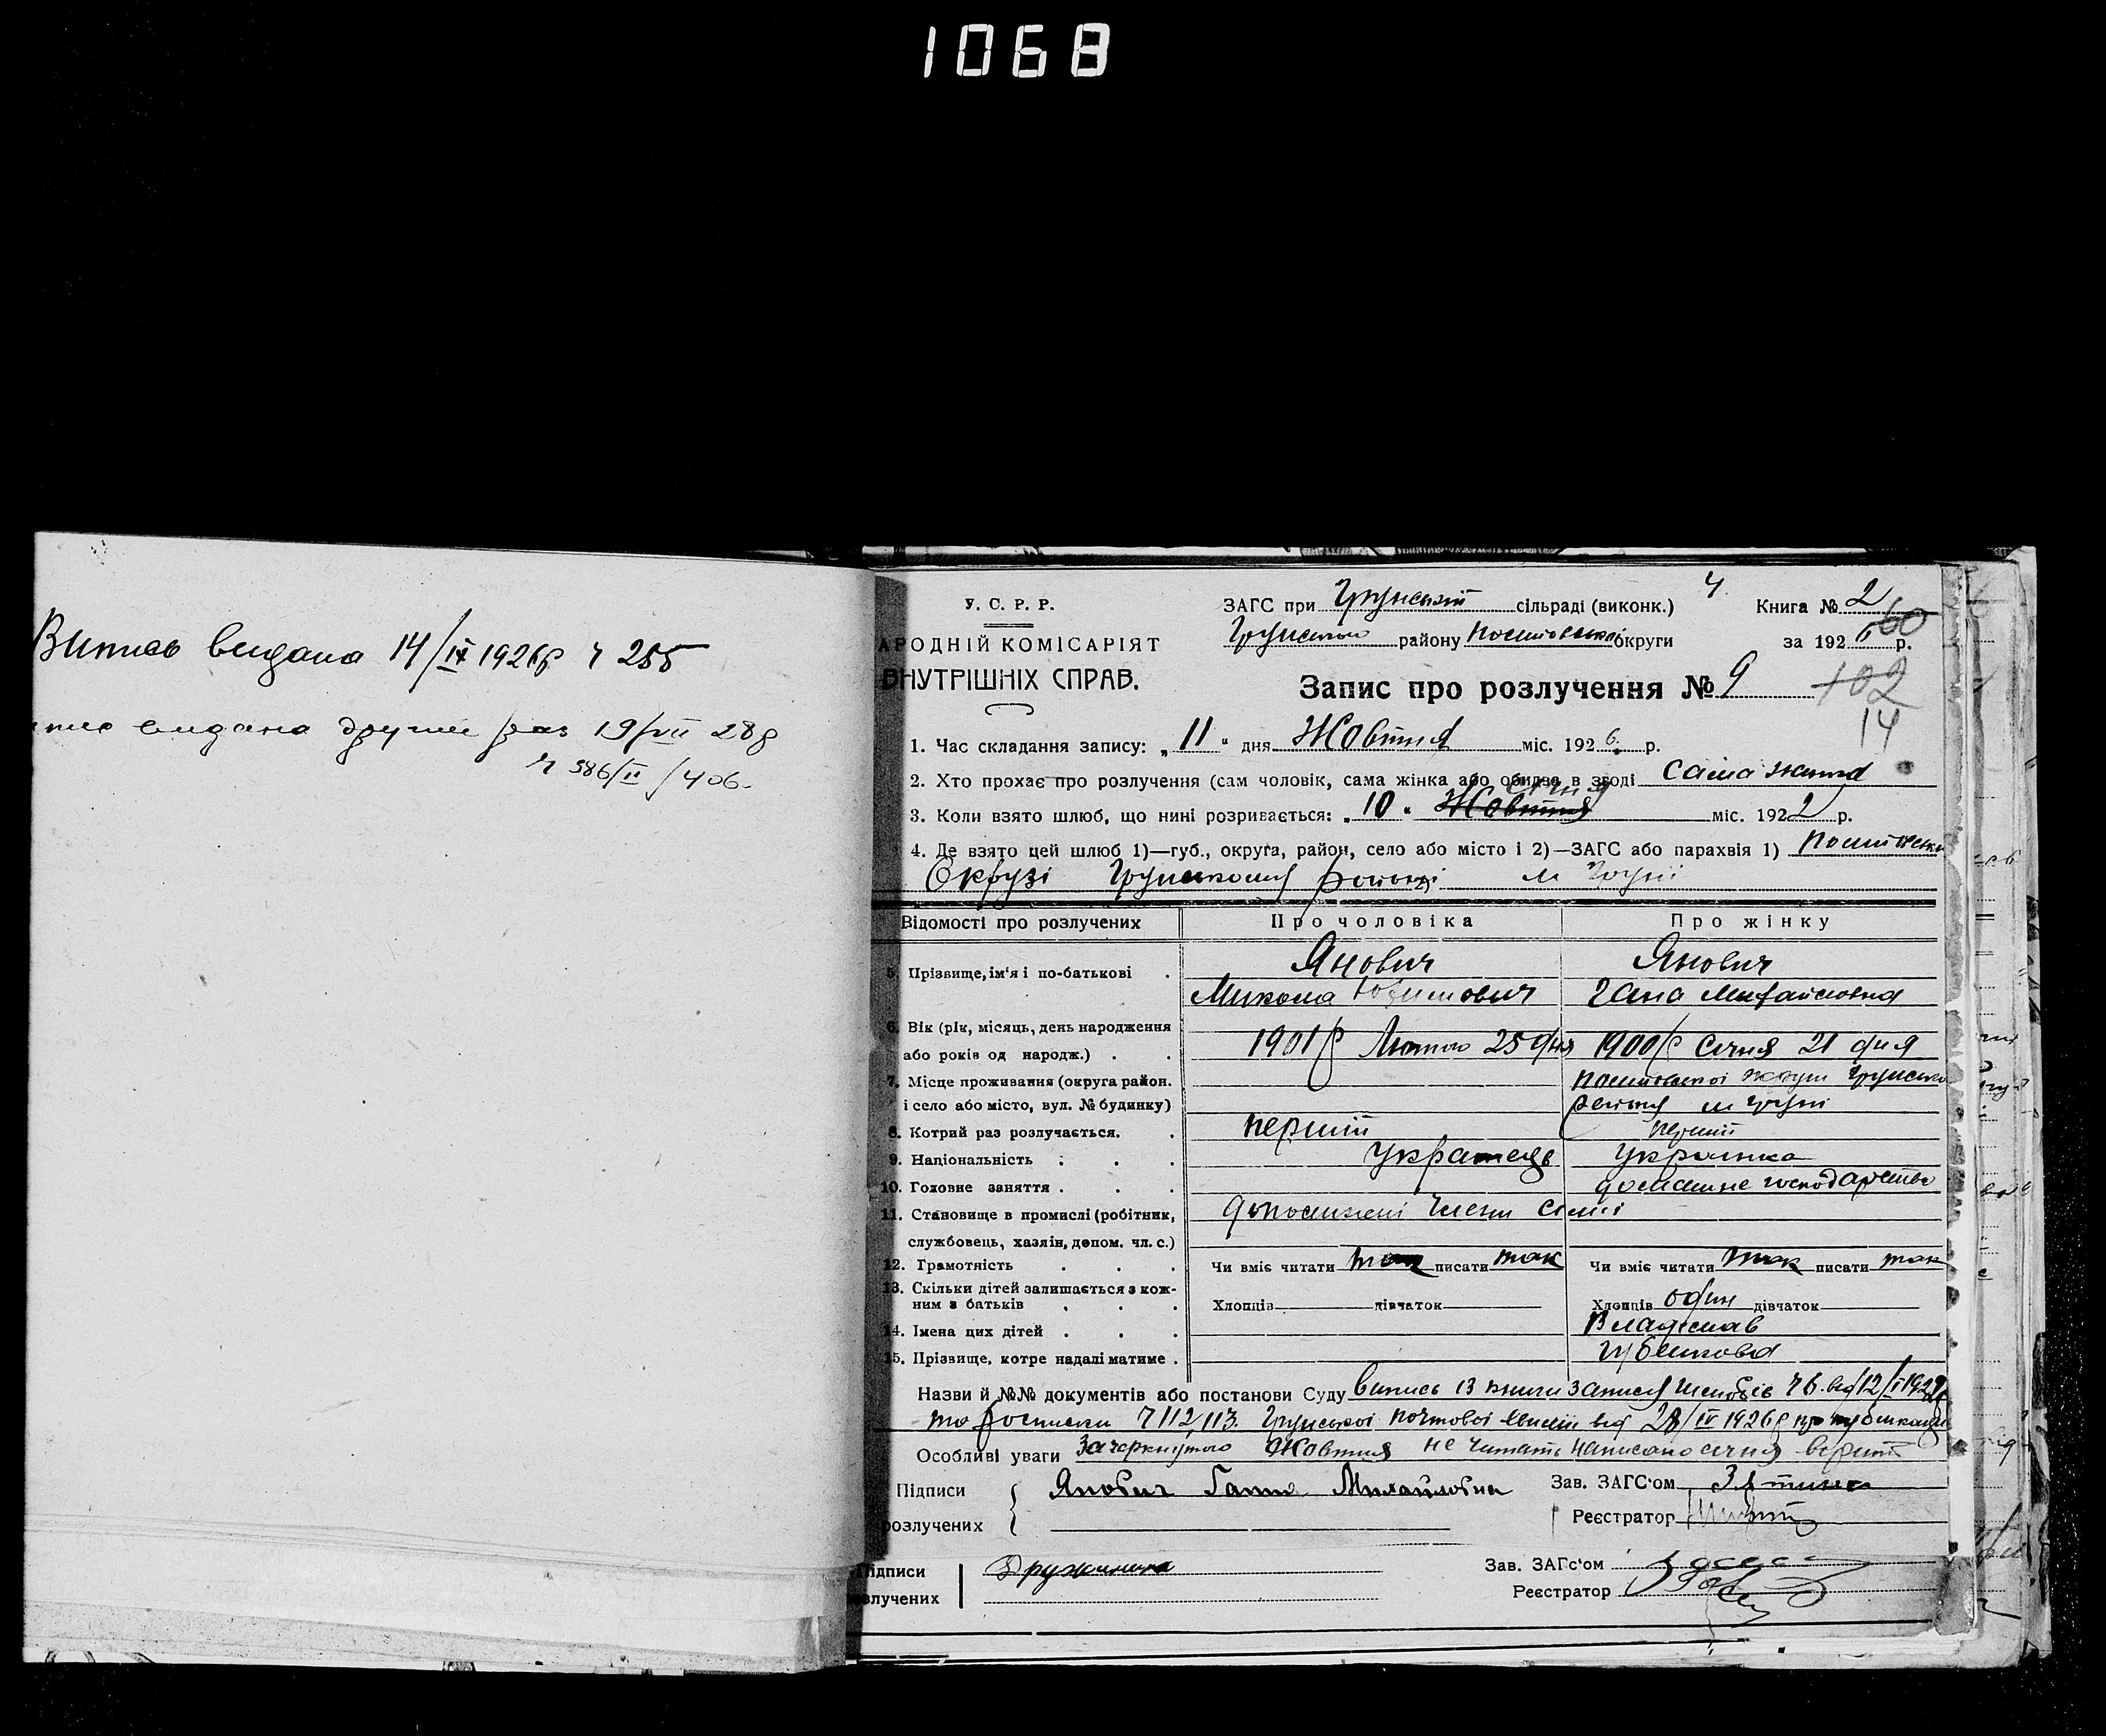 1068
Випись видана 14/IV 1926р ч 255
видана другий раз 19/VII 28р
ч 386/II /406.
У. С. Р. Р.
АРОДНІЙ КОМІСАРІЯТ
ВНУТРІШНІХ СПРАВ.
ЗАГС при Грунський сільраді (виконк.) Ч. Книга № 2
60
Грунського району округи за 1926 р.
Запис про розлучення № 9 102
14
1. Час складання запису: „11“ дня Жовтня міс. 1926. р.
2. Хто прохає про розлучення (сам чоловік, сама жінка або обидва в згоді сама жінка
січня
3. Коли взято шлюб, що нині розривається: „10“ Жовтня міс. 1922 р.
4. Де взято цей шлюб 1)—губ., округа, район, село або місто і 2)—ЗАГС або парахвія 1)
Окрузі Грунському районі 2) м Груні
Відомості про розлучених Про чоловіка Про жінку
5. Прізвище, ім'я і по-батькові . Янович Янович
Микола Юхимович Гана Михайловна
6. Вік (рік, місяць, день народження
або років од народж.) . . 1901р Лютого 25 дня 1900р Січня 21 дня
7. Місце проживання (округа район. округи Грунсько
і село або місто, вул. № будинку) району м Груні
8. Котрий раз розлучається. . перший перший
9. Національність . . . Украінець Украінка
10. Головне заняття . . . домашне господарство
11. Становище в промислі (робітник, допоміжні члени сімї
службовець, хазяін, допом. чл. с.)
12. Грамотність . . . Чи вміє читати так писати так Чи вміє читати так писати так
13. Скільки дітей залишається з кож-
ним з батьків . . . Хлопців дівчаток Хлопців один дівчаток
14. Імена цих дітей . . . Владіслав
15. Прізвище, котре надалі матиме .
Назви й №№ документів або постанови Суду випись із книги запису шлюбів ч 6. від 12/I
та росписки ч 112, 113. Грунської почтової від 28/IV 1926р про
Особливі уваги Зачеркнутого Жовтня не читать написано січня вірить
Підписи { Янович Ганна Михайловна Зав. ЗАГС'ом
розлучених Реєстратор
Підписи Дружинина Зав. ЗАГс'ом
злучених Реєстратор